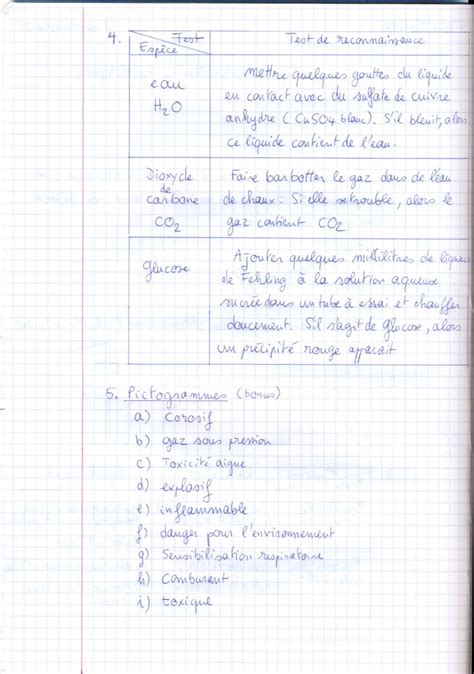 4.
Test
Espèce
Test de reconnaissance
eau
H2O
Mettre quelques gouttes du liquide
en contact avec du sulfate de cuivre
anhydre (CuSO4 blanc). S'il bleuit, alors
ce liquide contient de l'eau.
Dioxyde
de
carbone
CO2
Faire barbotter le gaz dans de l'eau
de chaux. Si elle se trouble, alors le
gaz contient CO2
Glucose
Ajouter quelques millilitres de liqueur
de Fehling à la solution aqueuse
sucrée dans un tube à essai et chauffer
doucement. S'il s'agit de glucose, alors
un précipité rouge apparait
5. Pictogrammes (bonus)
a) Corosif
b) gaz sous pression
c) Toxicité aigue
d) explosif
e) inflammable
f) danger pour l'environnement
g) Sensibilisation respiratoire
h) Comburant
i) toxique